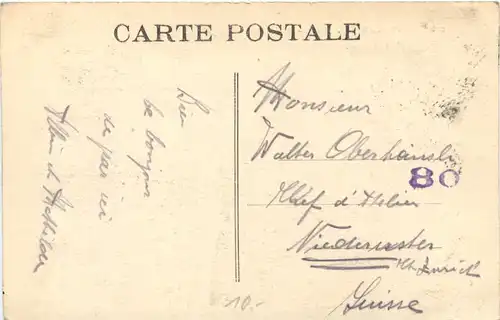 CARTE POSTALE
Bien
le bonjour
de par ici
Monsieur
Walter Oberhänsli
80
Chef d'Atelier
Niederuster
Kt. Zürich
Suisse
10.-